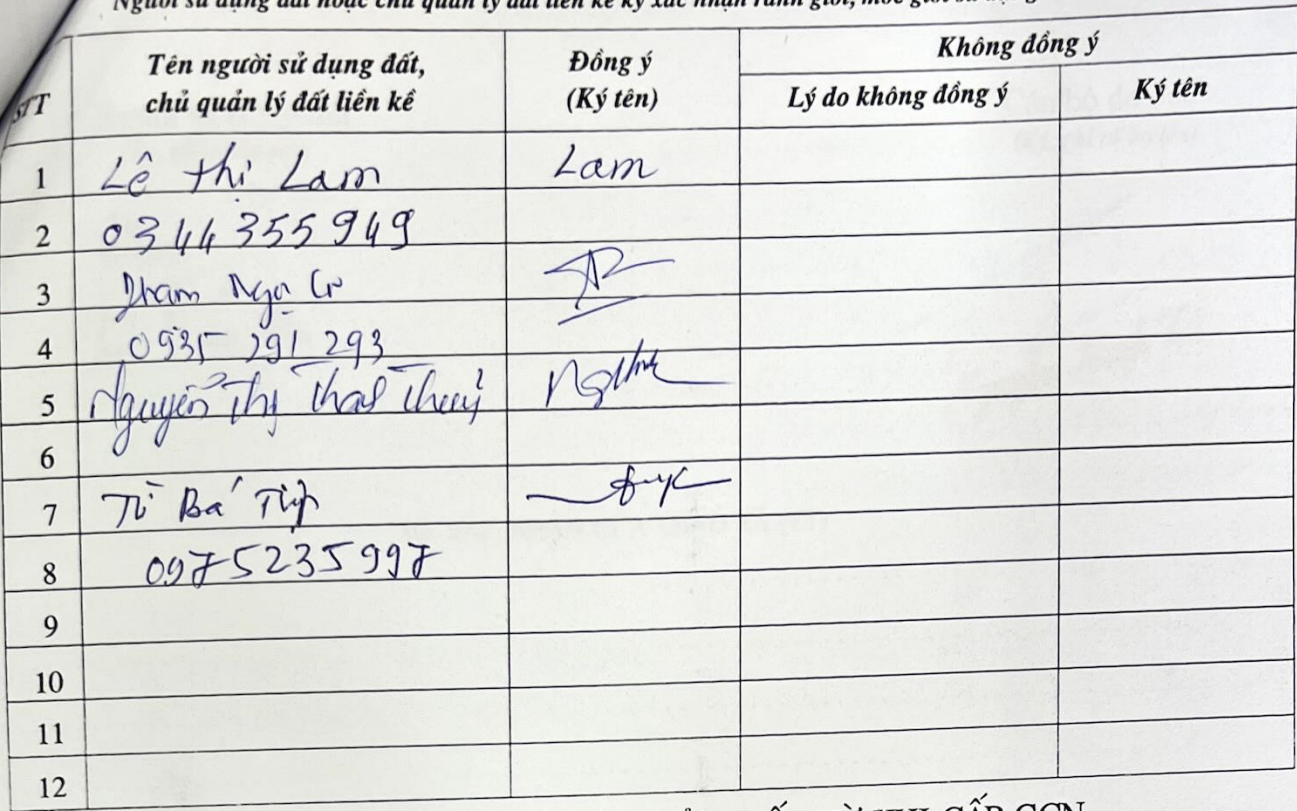 Người sử dụng đất hoặc chủ quản lý đất liền kề ký xác nhận ranh giới, mốc giới sử dụng
STT
Tên người sử dụng đất,
chủ quản lý đất liền kề
Đồng ý
(Ký tên)
Không đồng ý
Lý do không đồng ý
Ký tên
1 Lê Thị Lam Lam
2 0344355949
3 Phạm Ngọc
4 0935 291 293
5 Nguyễn Thị Thuỷ
6
7 Bá
8 0975235997
9
10
11
12
CẤP GCN